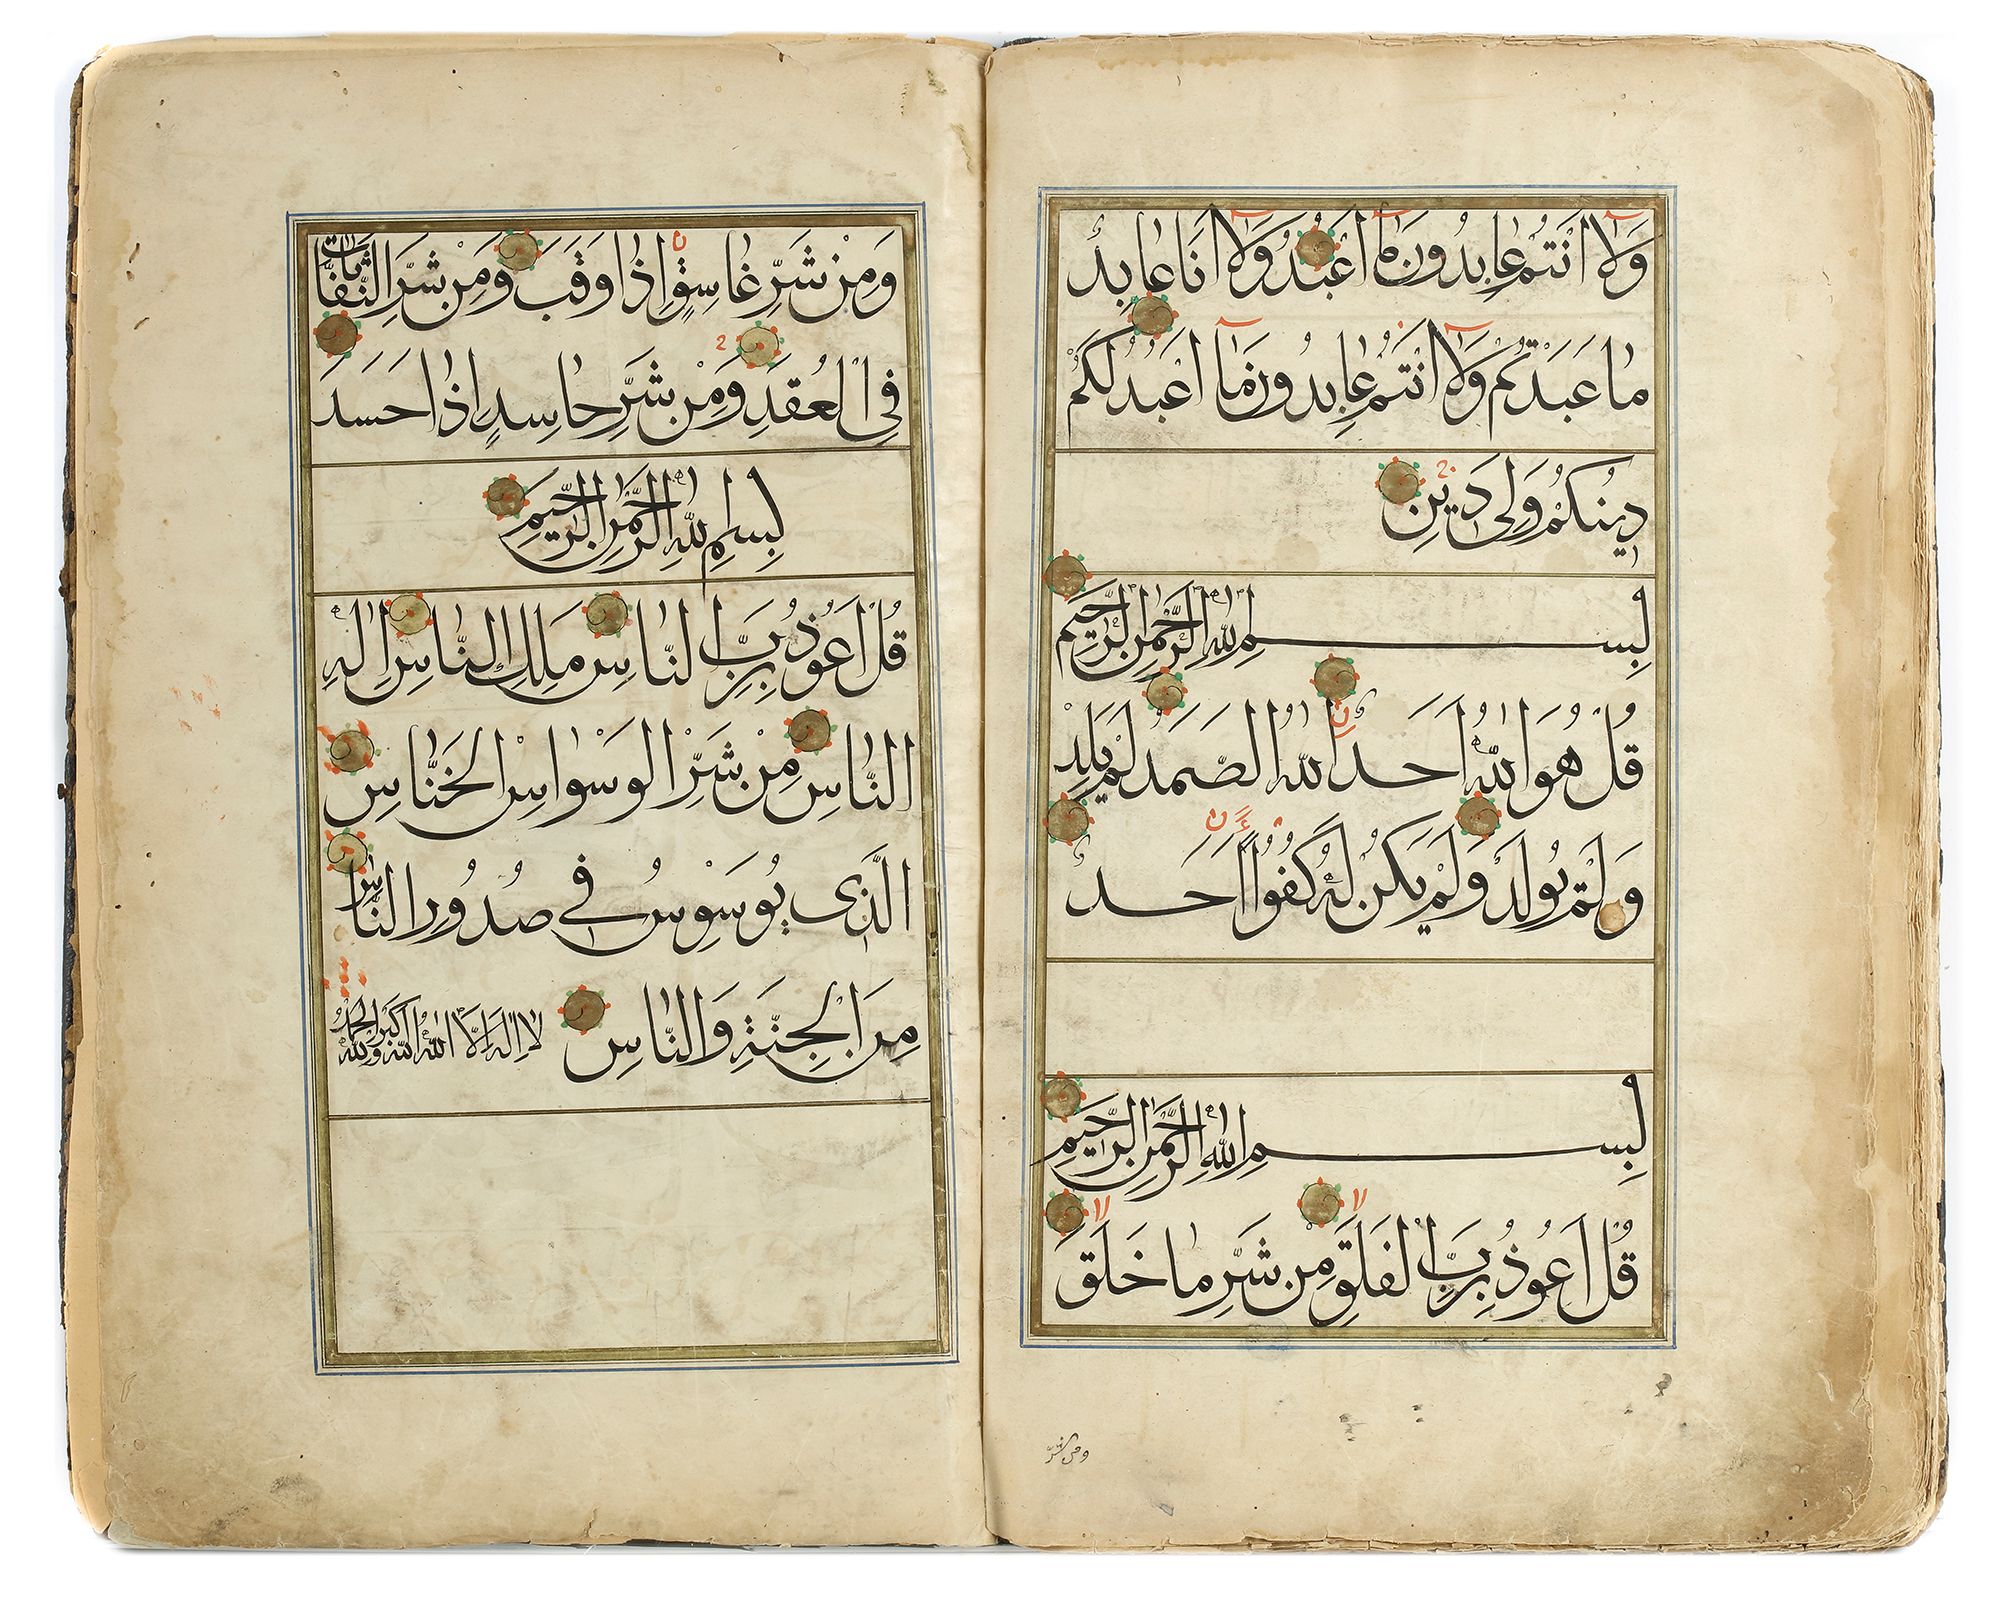 وَلَآ اَنْتُمْ عَابِدُونَ مَآ اَعْبُدُ وَلَآ اَنَا عَابِدٌ
مَا عَبَدْتُمْ وَلَآ اَنْتُمْ عَابِدُونَ مَآ اَعْبُدُ لَكُمْ
دِينُكُمْ وَلِىَ دِينِ
بِسْمِ اللهِ الرَّحْمٰنِ الرَّحِيمِ
قُلْ هُوَ اللهُ اَحَدٌ اَللهُ الصَّمَدُ لَمْ يَلِدْ
وَلَمْ يُولَدْ وَلَمْ يَكُنْ لَهُ كُفُوًا اَحَدٌ
بِسْمِ اللهِ الرَّحْمٰنِ الرَّحِيمِ
قُلْ اَعُوذُ بِرَبِّ الْفَلَقِ مِنْ شَرِّ مَا خَلَقَ
ومن شرّ
وَمِنْ شَرِّ غَاسِقٍ اِذَا وَقَبَ وَمِنْ شَرِّ النَّفَّاثَاتِ
فِى الْعُقَدِ وَمِنْ شَرِّ حَاسِدٍ اِذَا حَسَدَ
بِسْمِ اللهِ الرَّحْمٰنِ الرَّحِيمِ
قُلْ اَعُوذُ بِرَبِّ النَّاسِ مَلِكِ النَّاسِ اِلٰهِ
النَّاسِ مِنْ شَرِّ الْوَسْوَاسِ الْخَنَّاسِ
الَّذِى يُوَسْوِسُ فِى صُدُورِ النَّاسِ
مِنَ الْجِنَّةِ وَالنَّاسِ لَا اِلٰهَ اِلَّا اللهُ اللهُ اَكْبَرُ وَلِلّٰهِ الْحَمْدُ